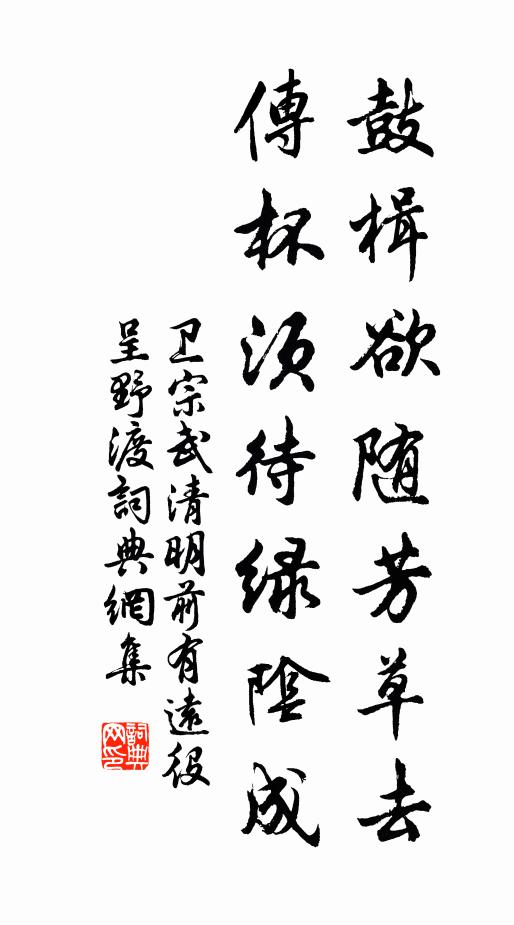 鼓楫欲随芳草去
傳杯須待緑陰成
卫宗武清明前有遠役
呈野渡詞典網集
詞典
网印